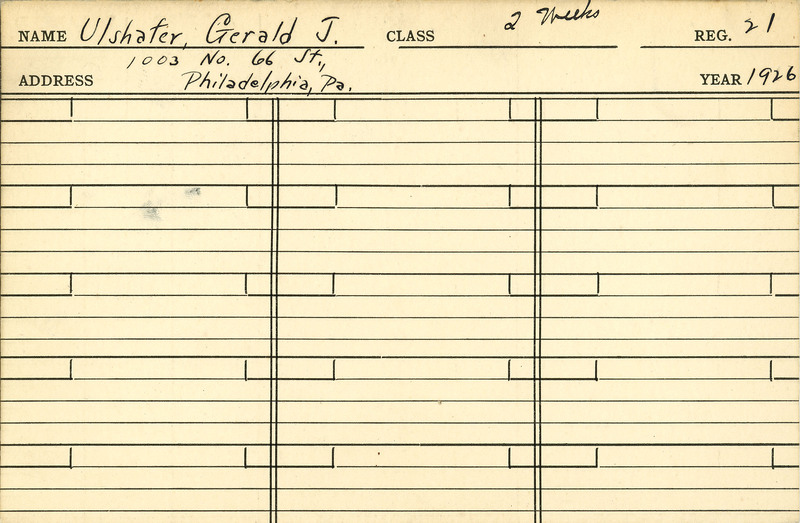 NAME Ulshafer, Gerald J. CLASS 2 Weeks REG. 21
1003 No. 66 St.,
ADDRESS Philadelphia, Pa. YEAR 1926